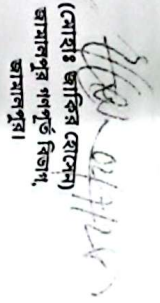 (মোহাঃ জাকির হোসেন)
জামালপুর গণপূর্ত বিভাগ,
জামালপুর।